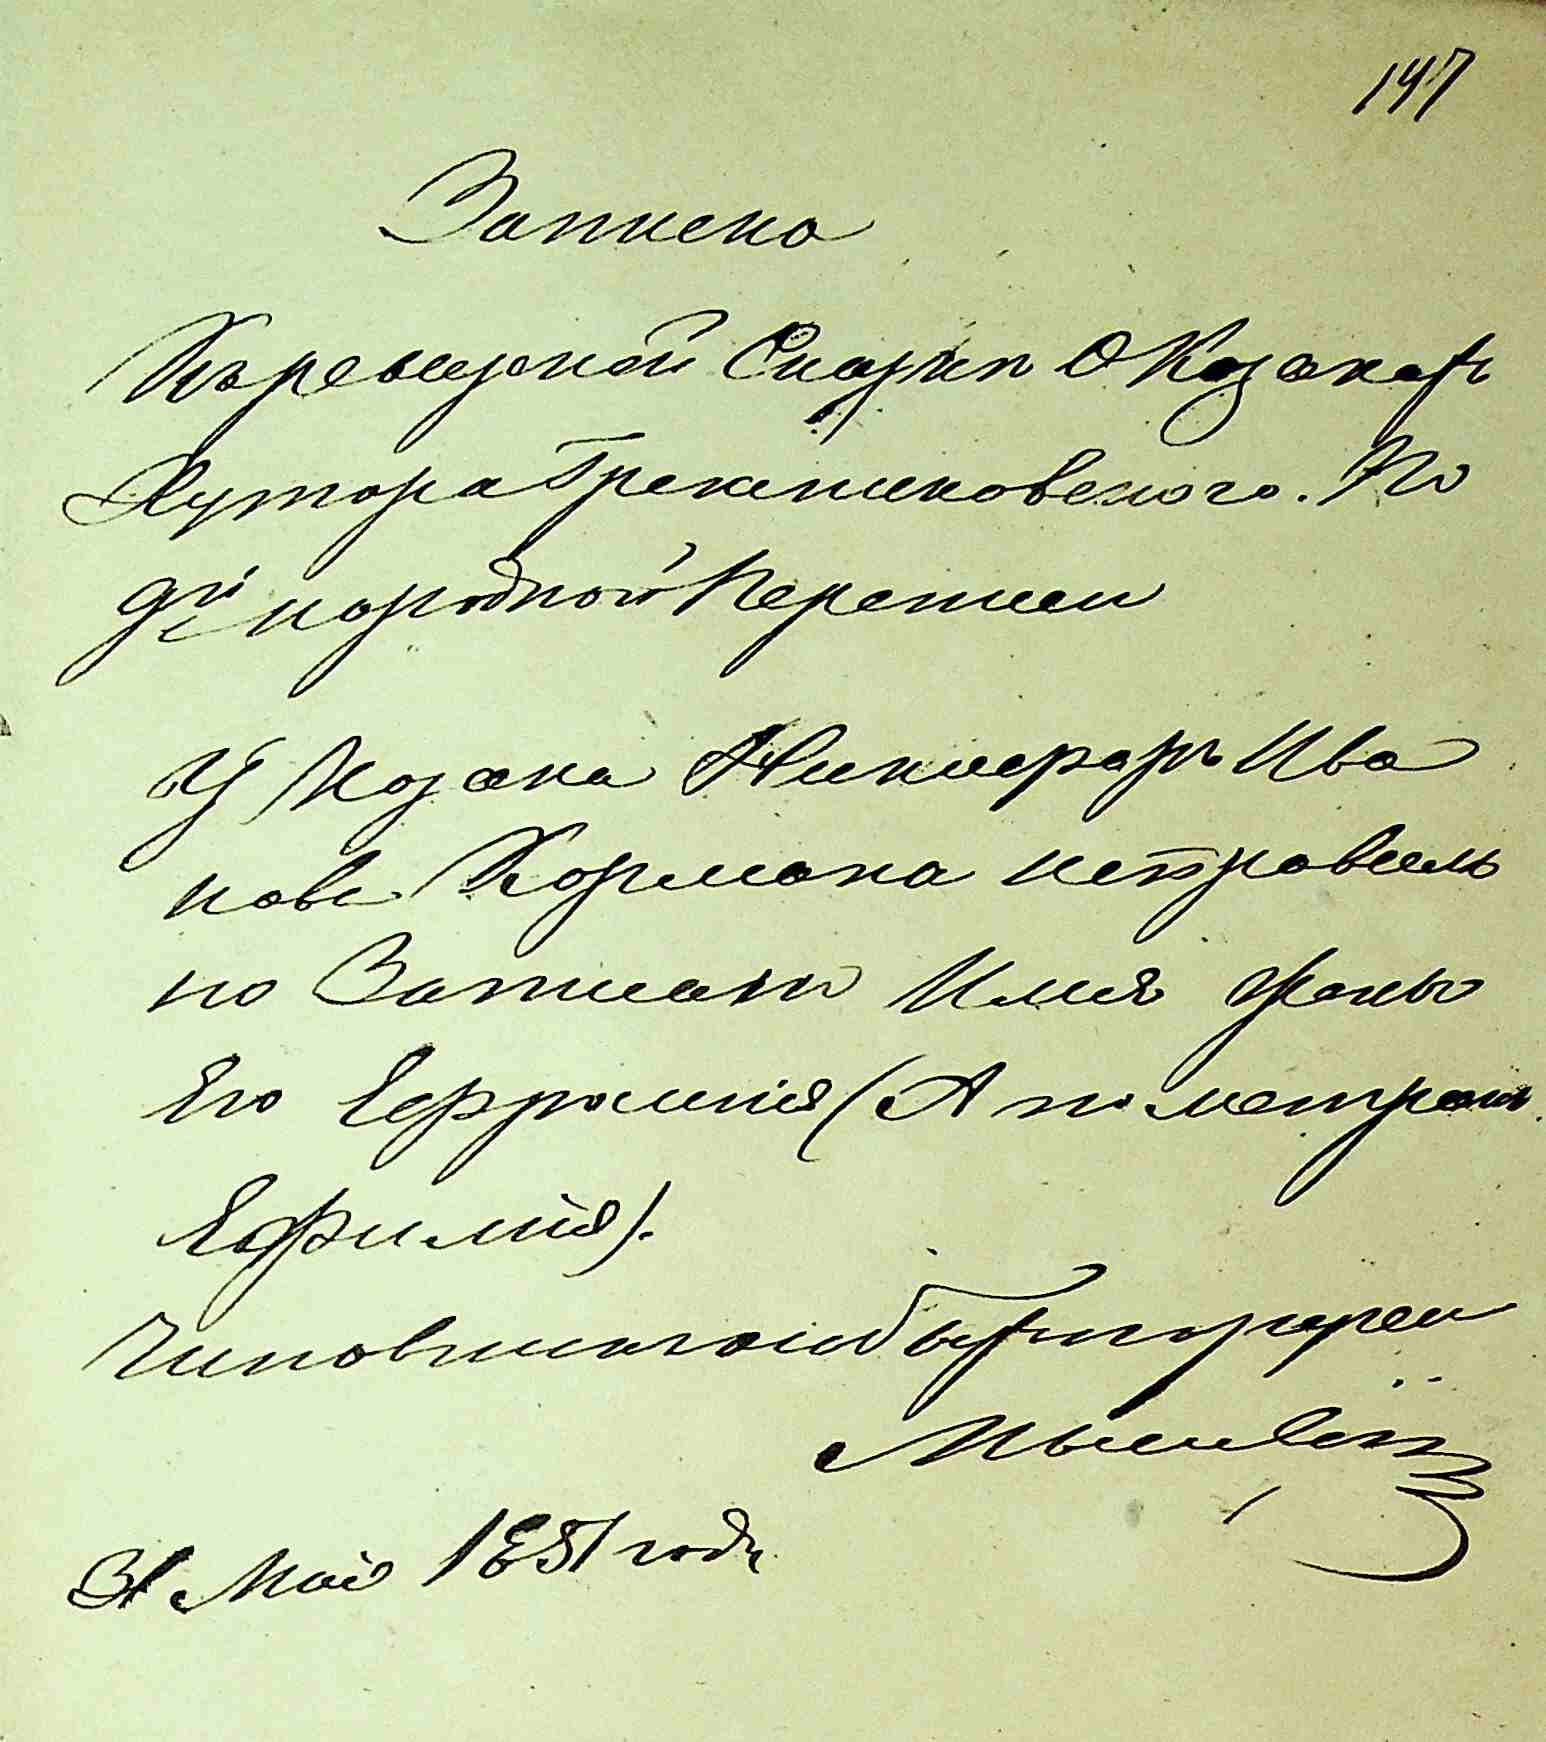 147
Записка
Къ ревизской Сказки О Козакахъ
Хутора Трекипиковского. По
9й народной Переписи
У Козака Никифора Ива
нова Кормана неправиль
но Записано Имя Жены
Его Ефросинія (А по метрекамъ
Ефимія).
31 Мая 1851 году